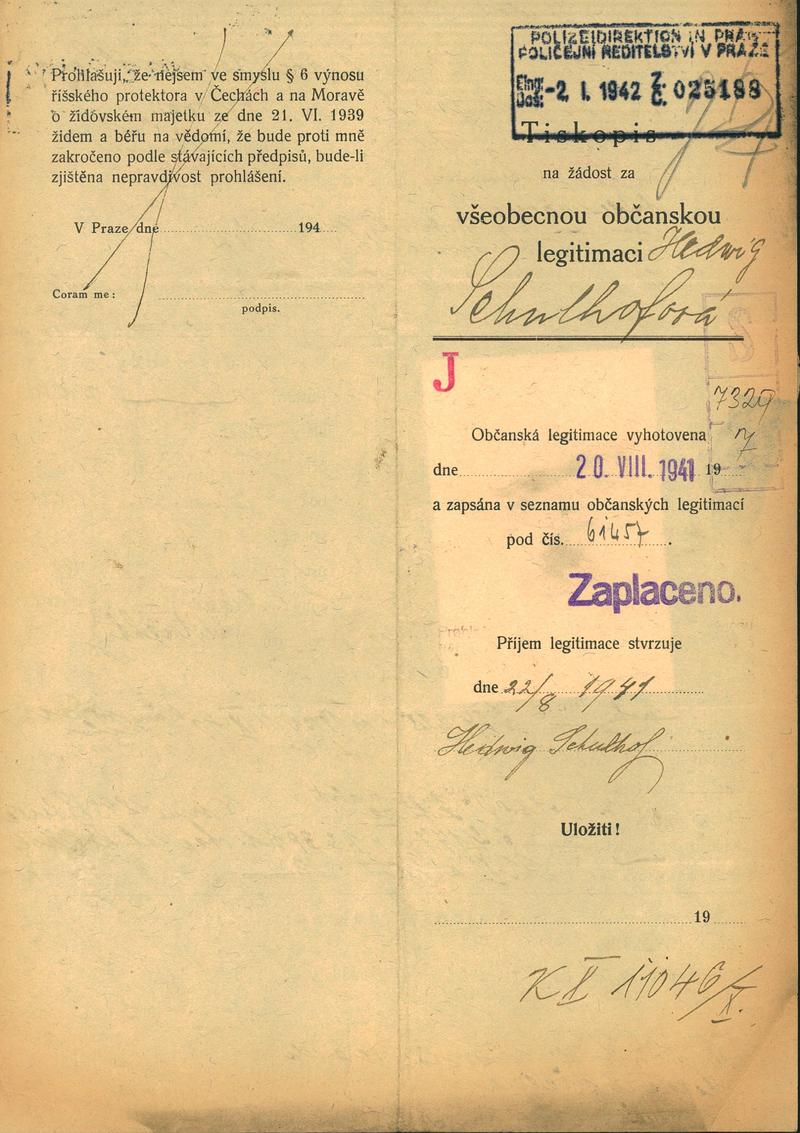 Prohlašuji, že nejsem ve smyslu § 6 výnosu
říšského protektora v Čechách a na Moravě
o židovském majetku ze dne 21. VI. 1939
židem a béřu na vědomí, že bude proti mně
zakročeno podle stávajících předpisů, bude-li
zjištěna nepravdivost prohlášení.
V Praze dne 194
Coram me:
podpis.
POLIZEIDIREKTION IN PRAG
POLICEJNÍ ŘEDITELSTVÍ V PRAZE
Eing.
Doš. -2. I. 1942 Z. Č. 025188
Tiskopis
na žádost za
všeobecnou občanskou
legitimaci Hedwig
Schulhofová
J
7329
Občanská legitimace vyhotovena
dne 20. VIII. 1941 19
a zapsána v seznamu občanských legitimací
pod čís. 61457.
Zaplaceno.
Příjem legitimace stvrzuje
dne 22/8 1941
Hedwig Schulhof
Uložiti!
19
K I 11046/X.